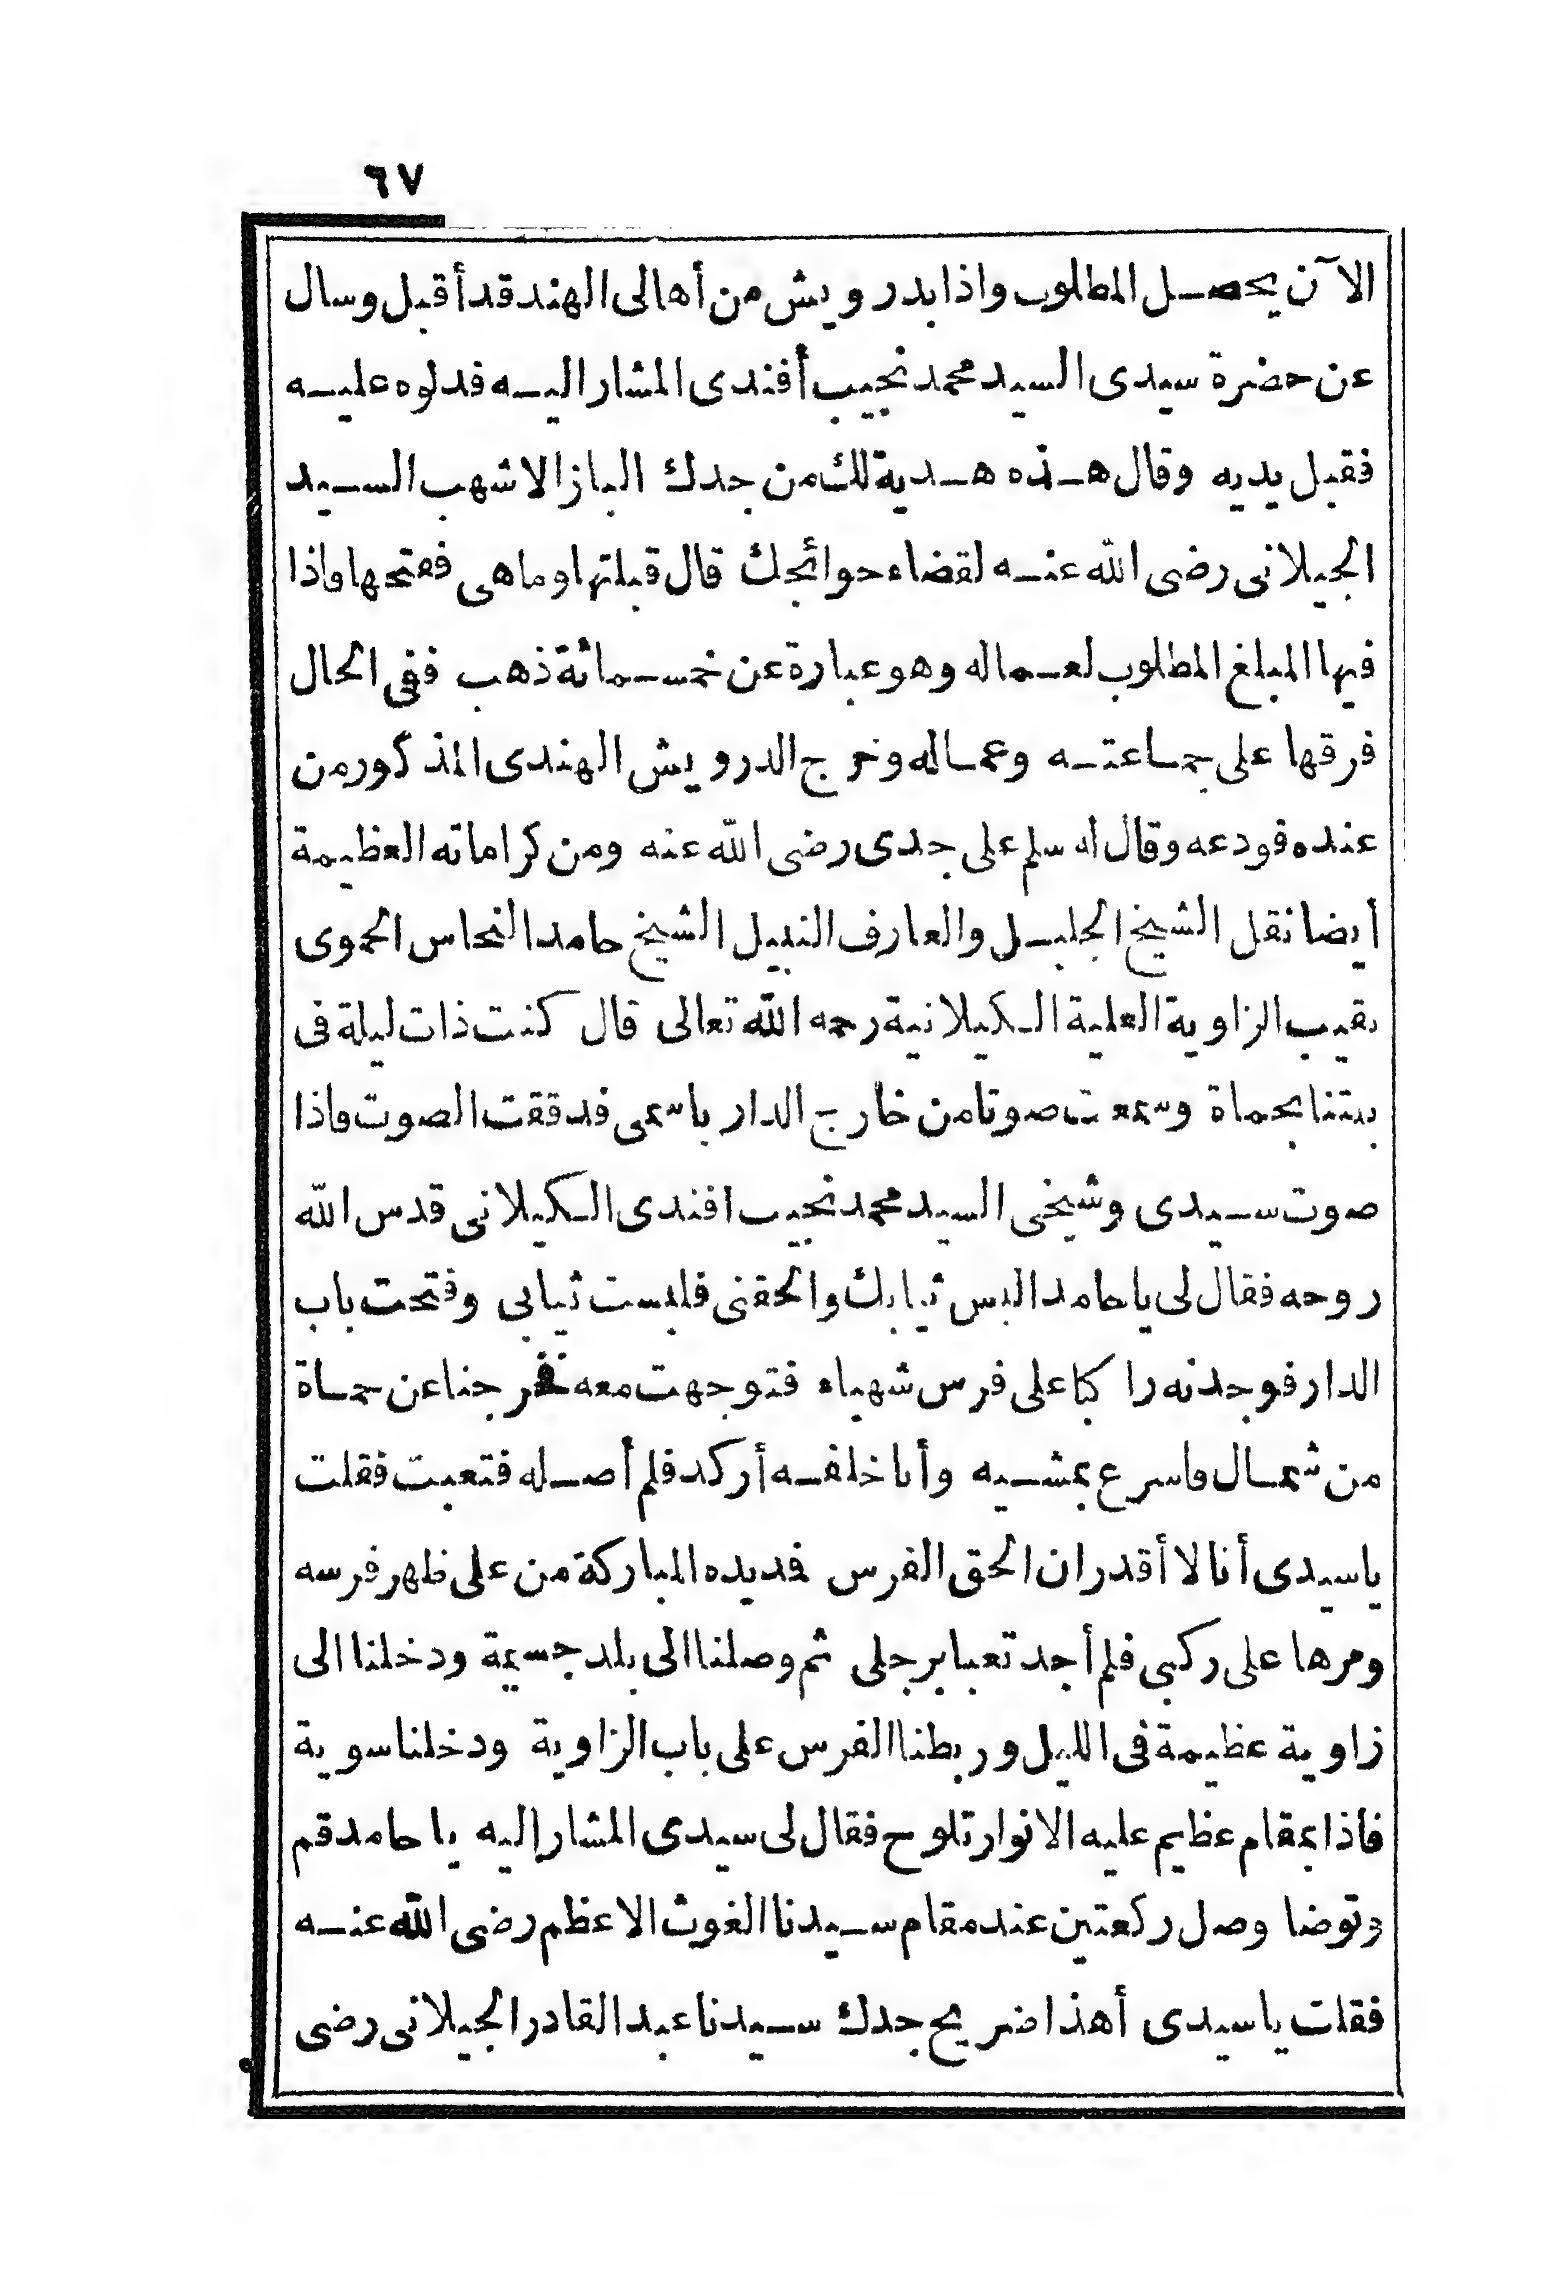 ٦٧
الآن يحصل المطلوب واذا بدرويش من أهالى الهند قد أقبل وسال
عن حضرة سيدى السيد محمد نجيب أفندى المشار اليه فدلوه عليه
فقبل يديه وقال هذه هدية لك من جدك الباز الاشهب السيد
الجيلانى رضى الله عنه لقضاء حوائجك قال قبلتها وماهى ففتحها واذا
فيها المبلغ المطلوب لعماله وهو عبارة عن خمسمائة ذهب ففى الحال
فرقها على جماعته وعماله وخرج الدرويش الهندى المذكور من
عنده فودعه وقال له سلم على جدى رضى الله عنه ومن كراماته العظيمة
أيضا نقل الشيخ الجليل والعارف النبيل الشيخ حامد النحاس الحموى
نقيب الزاوية العلية الكيلانية رحمه الله تعالى قال كنت ذات ليلة فى
بيتنا بحماة وسمعت صوتا من خارج الدار باسمى فدققت الصوت واذا
صوت سيدى وشيخى السيد محمد نجيب افندى الكيلانى قدس الله
روحه فقال لى يا حامد البس ثيابك والحقنى فلبست ثيابى وفتحت باب
الدار فوجدته راكبا على فرس شهباء فتوجهت معه فخرجنا عن حماة
من شمال واسرع بمشيه وأنا خلفه أركد فلم أصله فتعبت فقلت
يا سيدى أنا لا أقدر ان الحق الفرس فمد يده المباركة من على ظهر فرسه
ومرها على ركبى فلم أجد تعبا برجلى ثم وصلنا الى بلد جسيمة ودخلنا الى
زاوية عظيمة فى الليل وربطنا الفرس على باب الزاوية ودخلنا سوية
فاذا بمقام عظيم عليه الانوار تلوح فقال لى سيدى المشار إليه يا حامد قم
وتوضا وصل ركعتين عند مقام سيدنا الغوث الاعظم رضى الله عنه
فقلت يا سيدى أهذا ضريح جدك سيدنا عبد القادر الجيلانى رضى